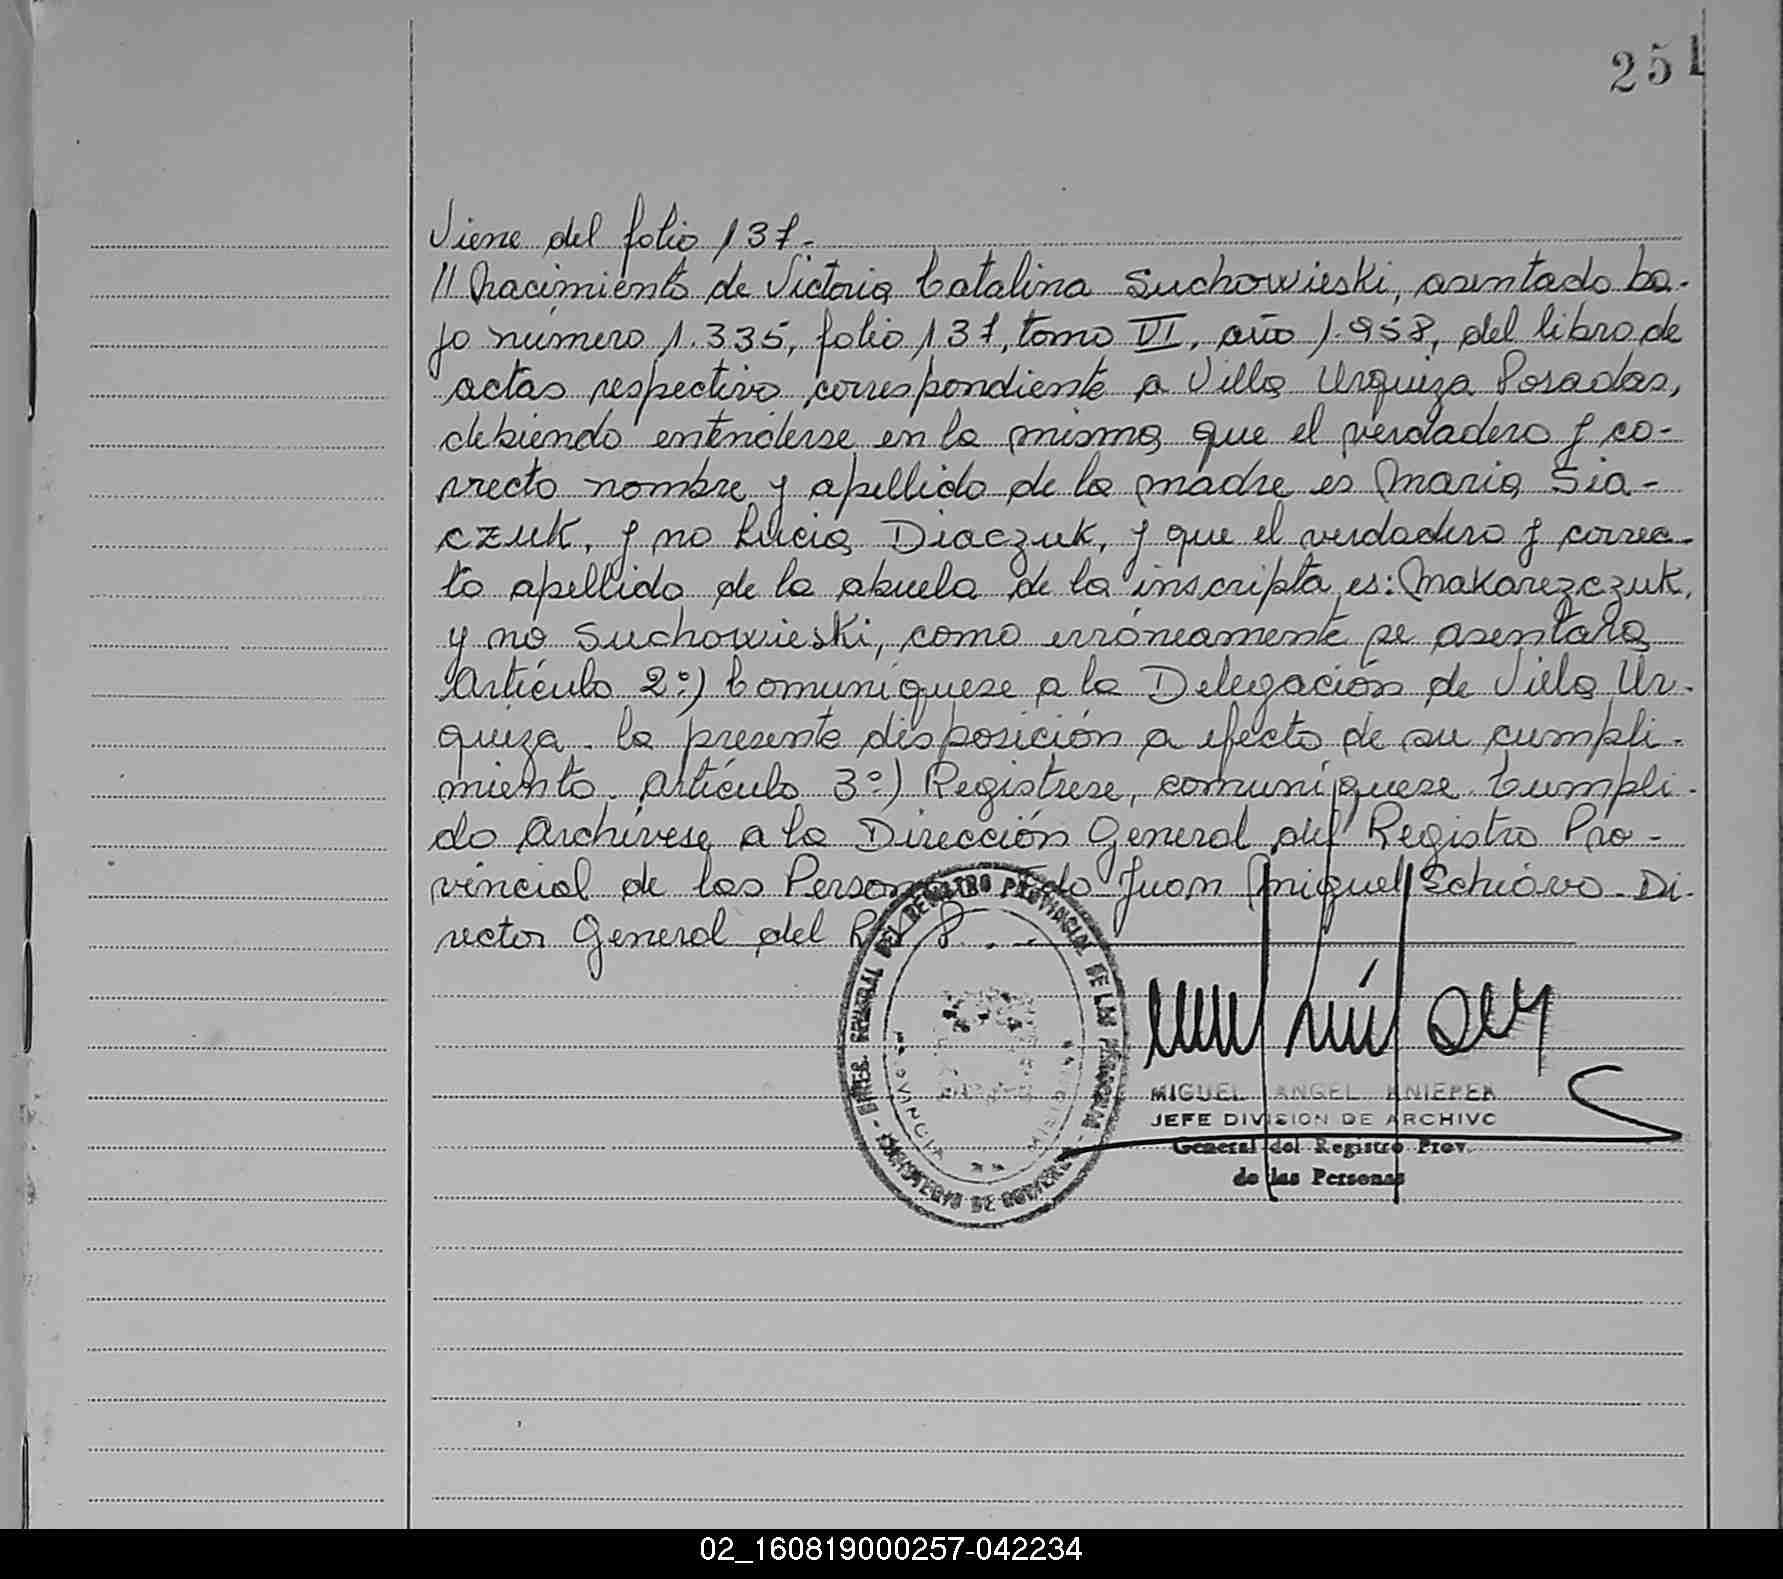 251
Viene del folio 137.-
// Nacimiento de Victoria Catalina Suchowieski, asentado ba-
jo número 1.335, folio 137, tomo VI, año 1.958, del libro de
actas respectivo correspondiente a Villa Urquiza Posadas,
debiendo entenderse en la misma que el verdadero y co-
rrecto nombre y apellido de la madre es Maria Sia-
czuk, y no Lucia Diaczuk, y que el verdadero y correc-
to apellido de la abuela de la inscripta es: Makarezczuk,
y no Suchowieski, como erróneamente se asentara
Artículo 2º:) Comuníquese a la Delegación de Villa Ur-
quiza. la presente disposición a efecto de su cumpli-
miento. Artículo 3º:) Registrese, comuníquese. Cumpli-
do Archívese a la Dirección General del Registro Pro-
vincial de las Personas Fdo Juan Miguel Schiavo. Di-
rector General del R. P. P. . .-
DIREC. GENERAL DEL REGISTRO PROVINCIAL DE LAS PERSONAS
- MINISTERIO DE GOBIERNO -
PROVINCIA MISIONES
MIGUEL ANGEL KNIEPER
JEFE DIVISION DE ARCHIVO
General del Registro Prov.
de las Personas
02_160819000257-042234